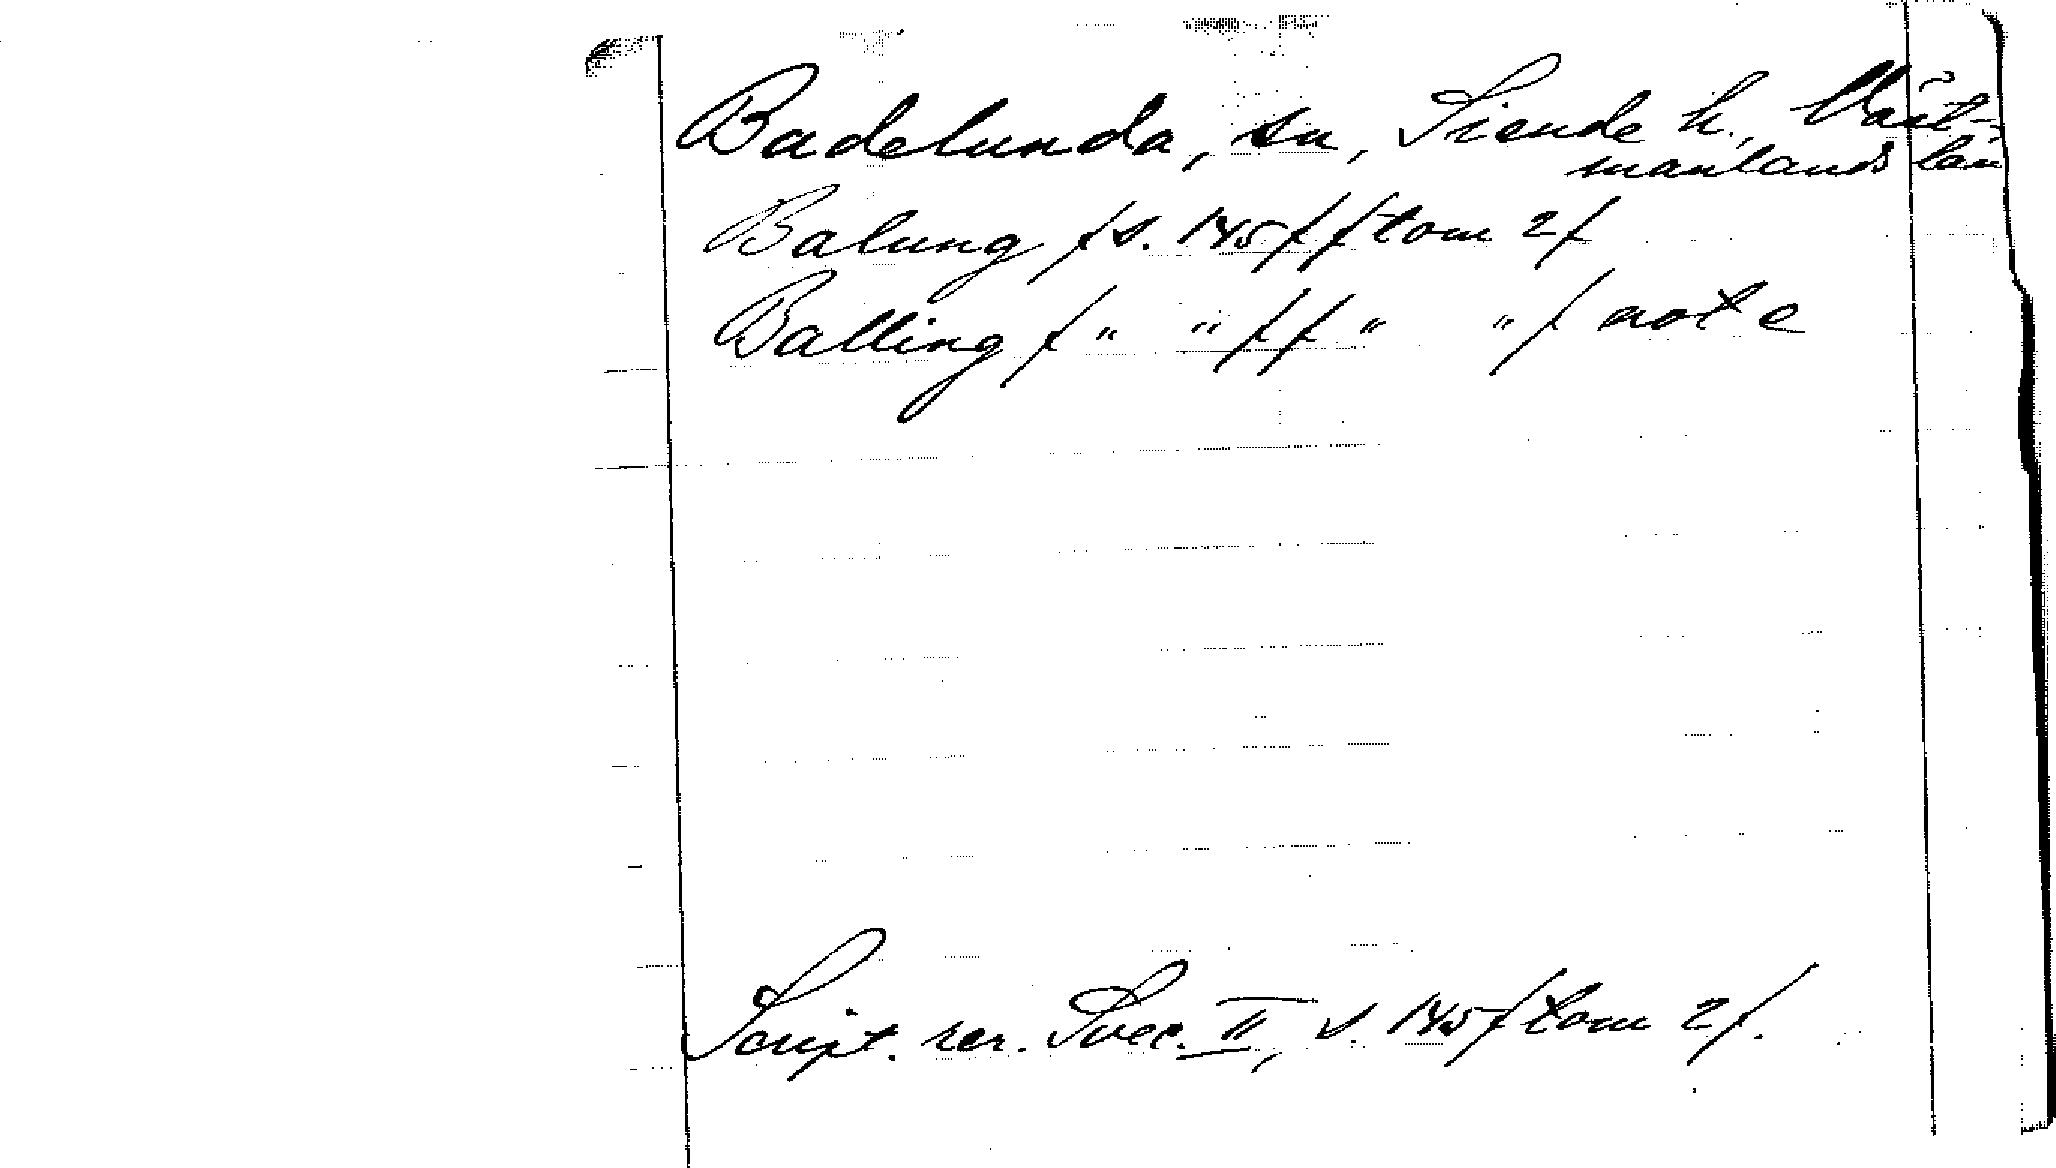 Badelunda, sn, Siende h., Väst-
manlands län
Balung /s. 145/ /tom 2/
Balling /" "/ /" "/ note
Script. rer. Svec. II, s. 145 /tom 2/.